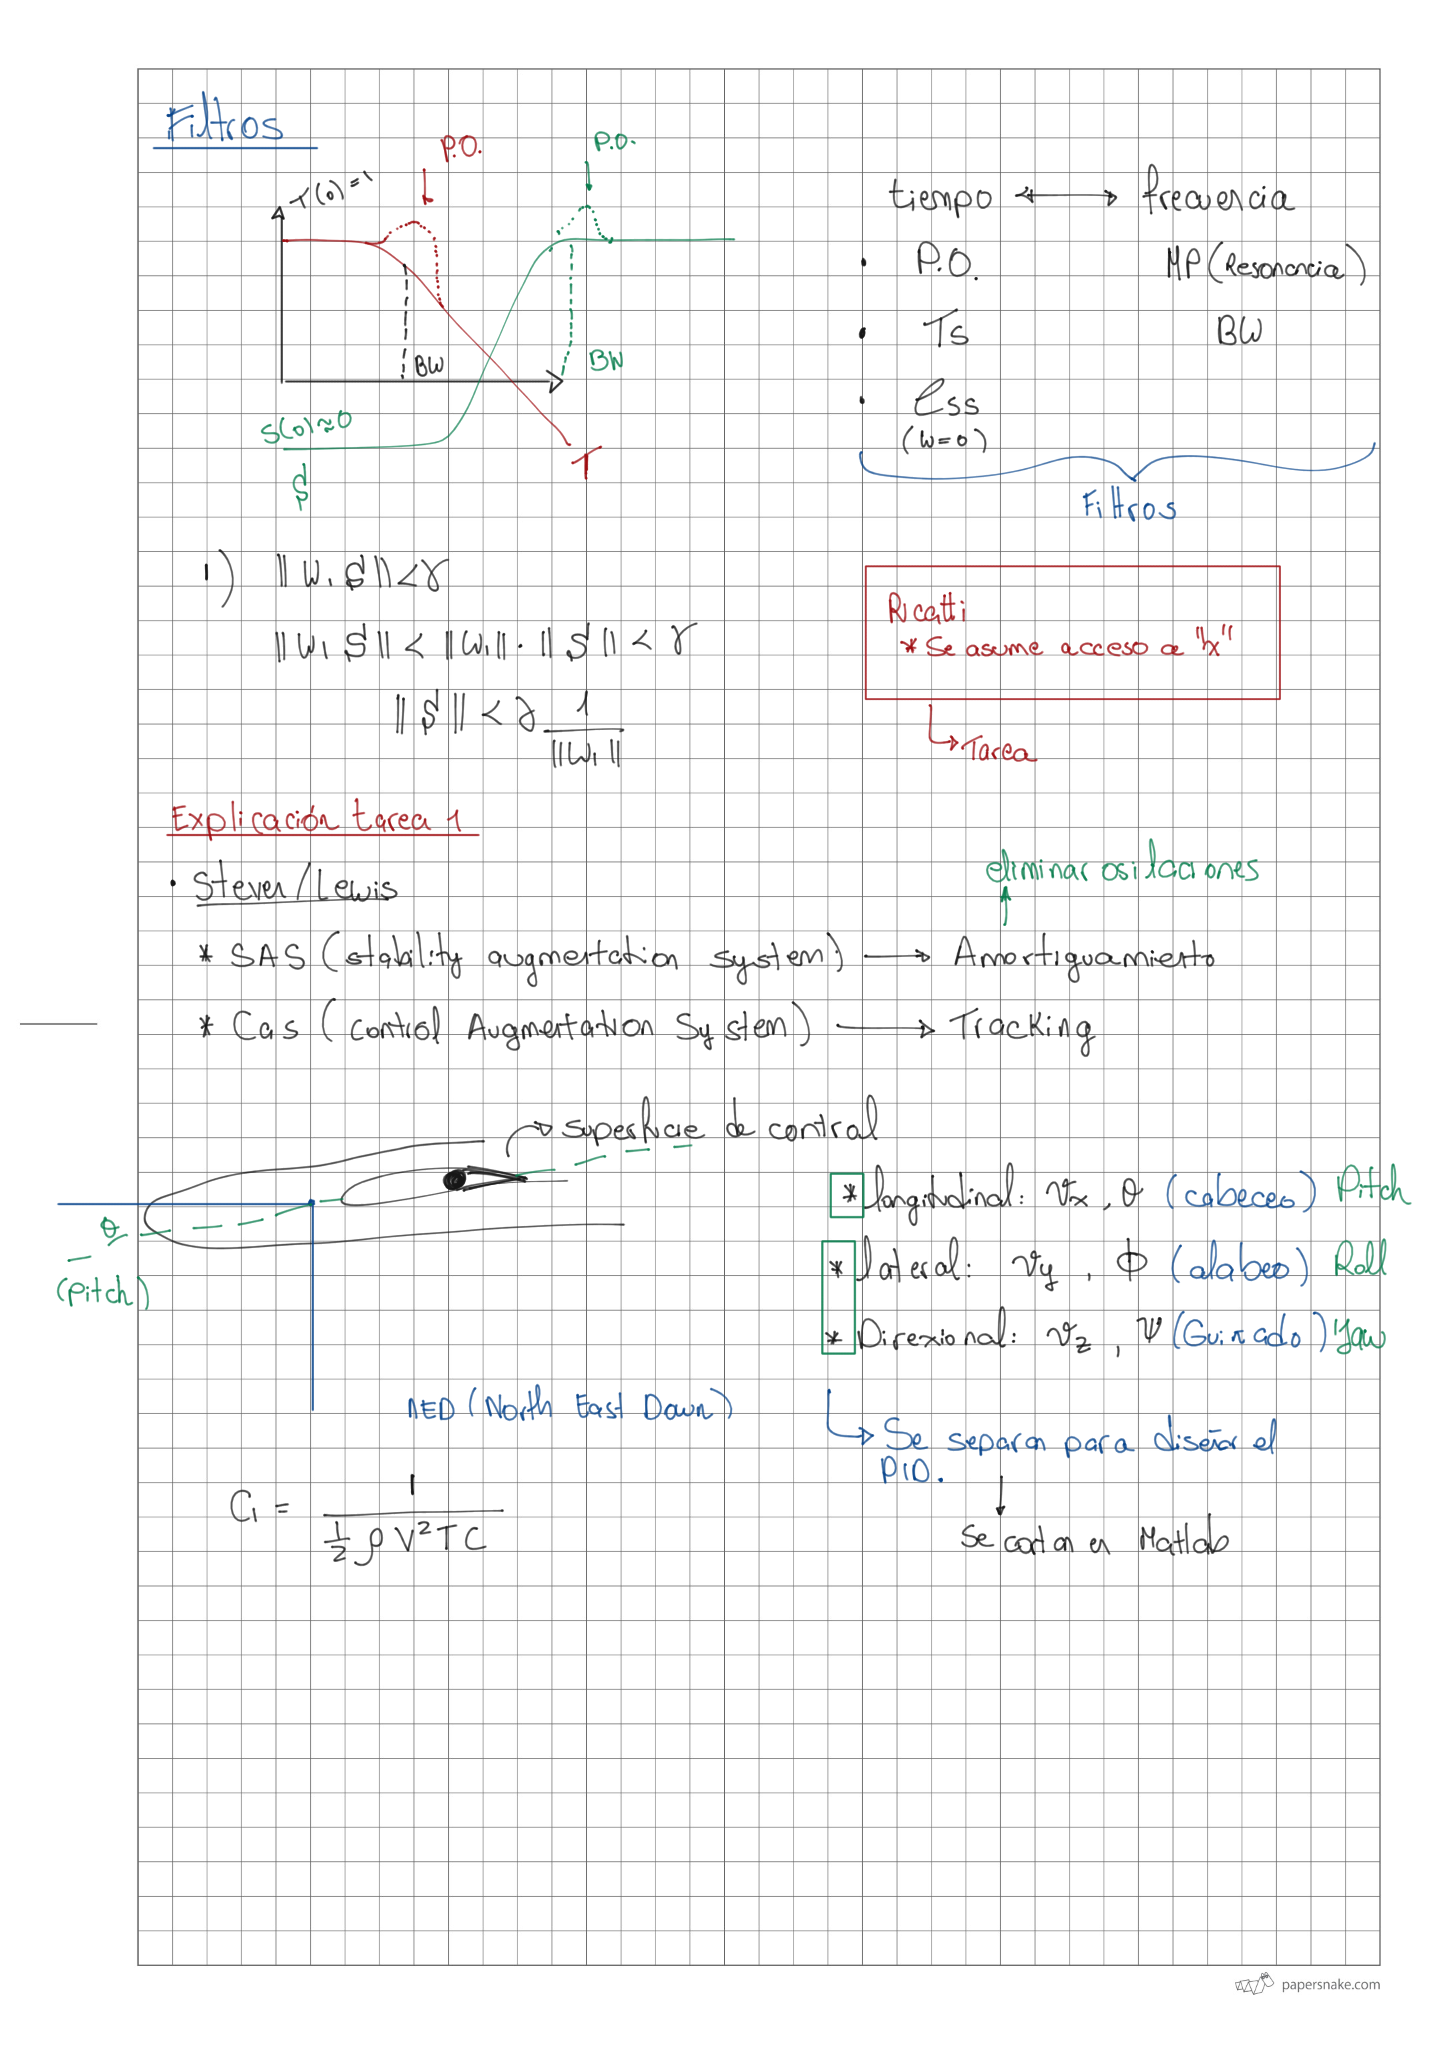 Filtros
P.O.
P.O.
T(0)=1
BW
BW
S(0)≈0
S
T
tiempo ⟷ frecuencia
• P.O. MP (Resonancia)
• Ts BW
• ess
(w=0)
Filtros
1) ||W₁ S|| < γ
||W₁ S|| < ||W₁|| · || S || < γ
|| S || < γ 1
||W₁||
Ricatti
* Se asume acceso a "x"
Tarea
Explicación tarea 1
• Steven/Lewis
eliminar osilaciones
* SAS (stability augmentation system) → Amortiguamiento
* Cas (control Augmentation System) → Tracking
superficie de control
θ
(pitch)
* longitudinal: Vx, θ (cabeceo) Pitch
* lateral: Vy, Φ (alabeo) Roll
* Direxional: Vz, Ψ (Guiñado) Yaw
NED (North East Down)
Se separan para diseñar el
PID.
Se cortan en Matlab
C₁ = 1
½ ρ V² T C
papersnake.com